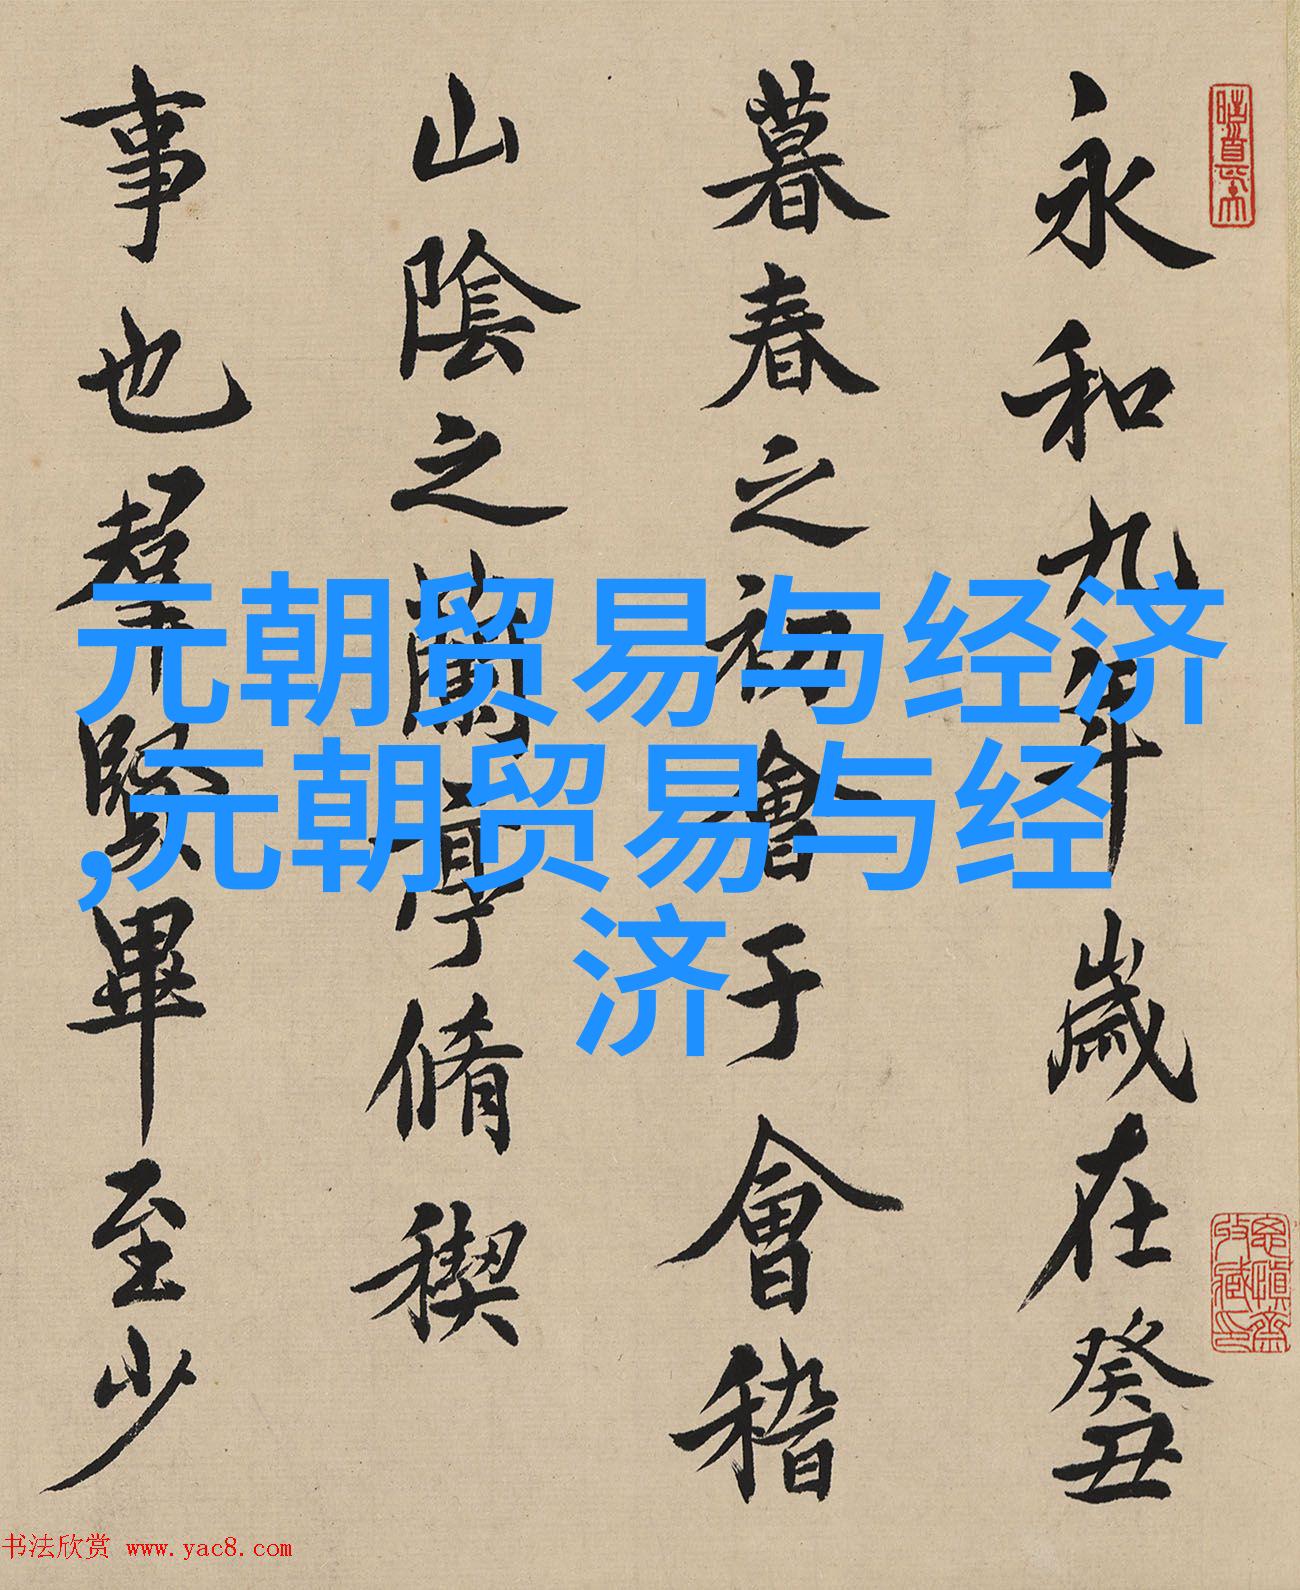 永和九年歲在癸丑
暮春之初會于會稽
山陰之蘭亭脩稧
事也羣賢畢至少
元朝贸易与经济
,元朝贸易与经
济
书法欣赏 www.yac8.com